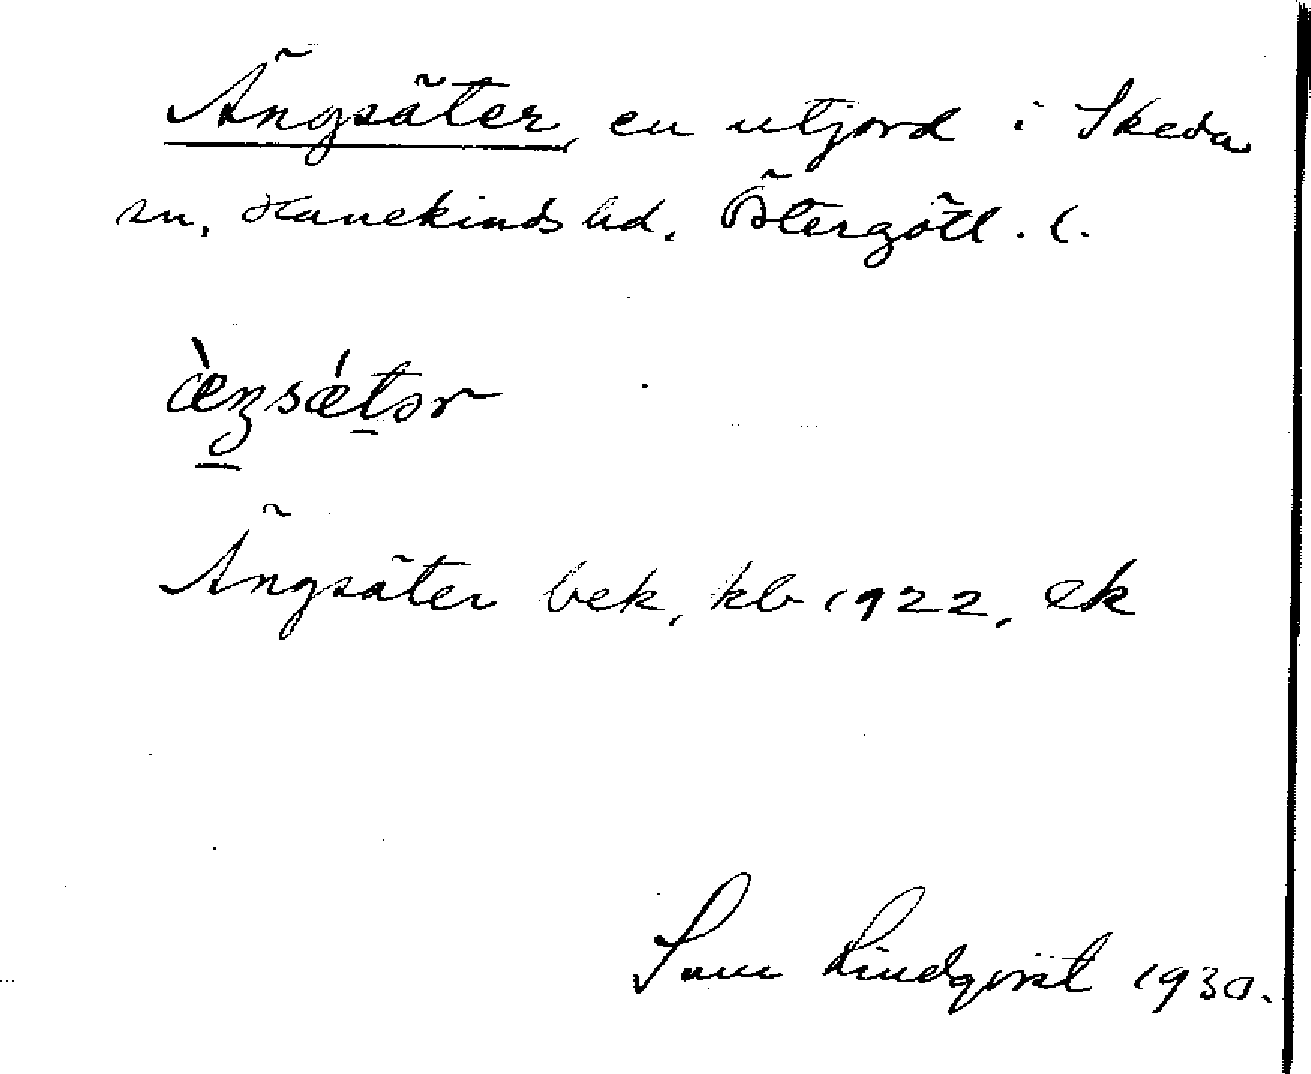 Ängsäter, en utjord i Skeda
sn, Hanekinds hd. Östergötl. l.
æ̀ŋsǽtər
Ängsäter bek, kb 1922, ek
Sune Lindqvist 1930.